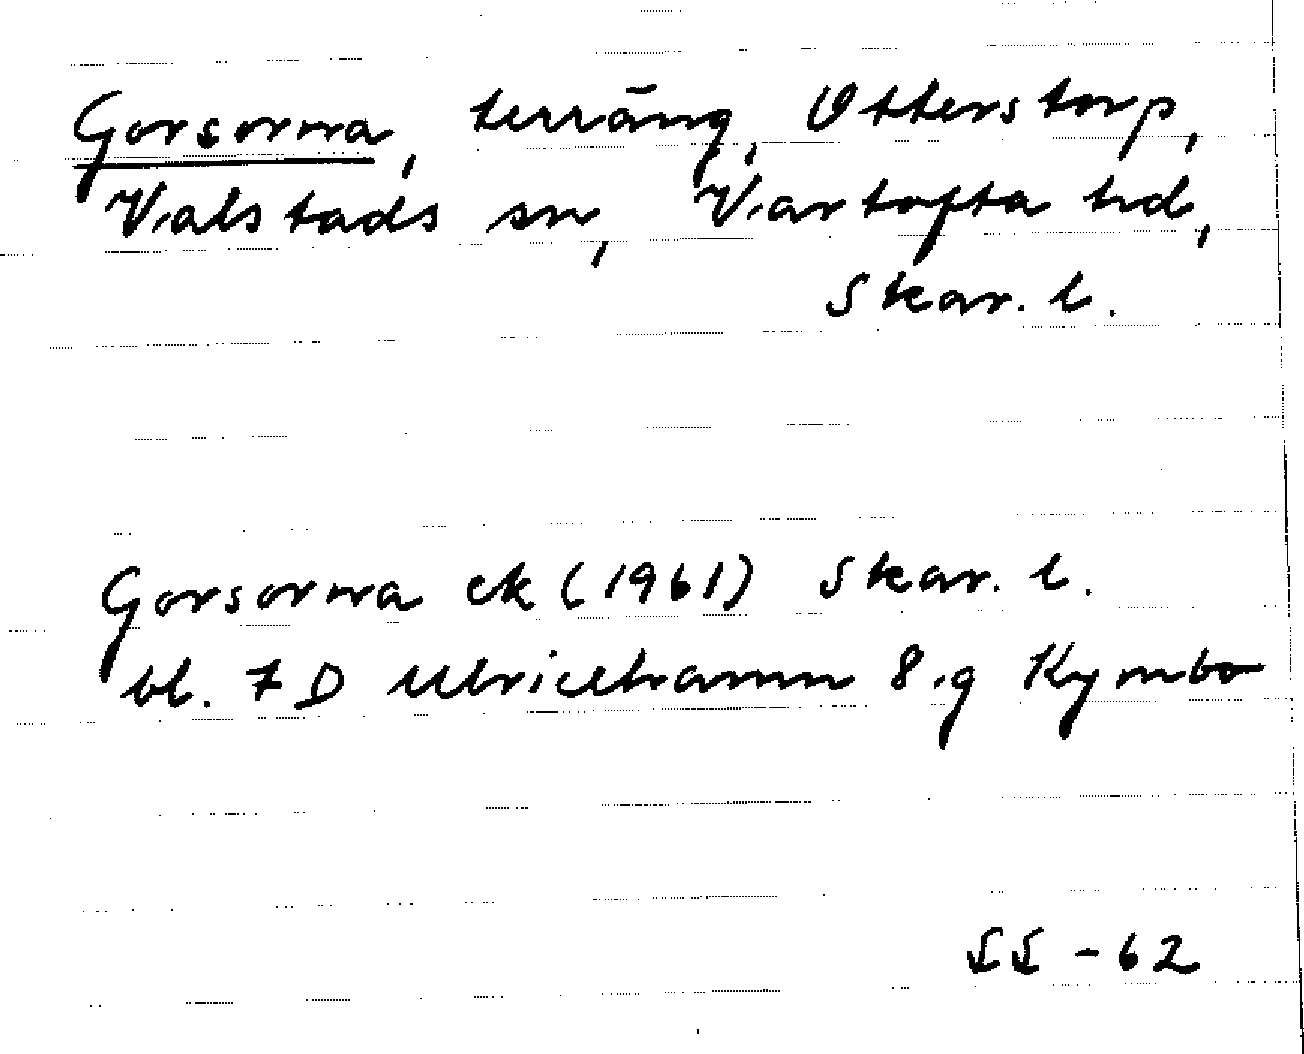 Gorsorna, terräng, Utterstorp,
Valstads sn, Vartofta hd,
Skar. l.
Gorsorna ek (1961) Skar. l.
bl. 7 D Ulricehamn 8.g Kymbo
SS - 62